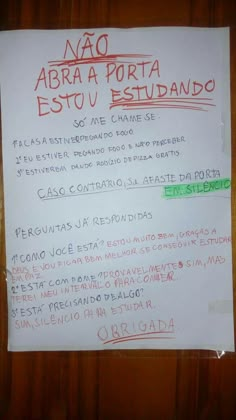 NÃO
ABRA A PORTA
ESTOU ESTUDANDO
SÓ ME CHAME SE:
1º CASA ESTIVER PEGANDO FOGO
2º EU ESTIVER PEGANDO FOGO E NÃO PERCEBER
3º ESTIVEREM DANDO RODÍZIO DE PIZZA GRÁTIS
CASO CONTRÁRIO, SE AFASTE DA PORTA
EM SILÊNCIO
PERGUNTAS JÁ RESPONDIDAS
1º COMO VOCÊ ESTÁ? ESTOU MUITO BEM, GRAÇAS A
DEUS E VOU FICAR BEM MELHOR SE CONSEGUIR ESTUDAR
EM PAZ.
2º ESTÁ COM FOME? PROVAVELMENTE SIM, MAS
TIREI MEU INTERVALO PARA COMER
3º ESTÁ PRECISANDO DE ALGO?
SIM, SILÊNCIO PARA ESTUDAR.
OBRIGADA